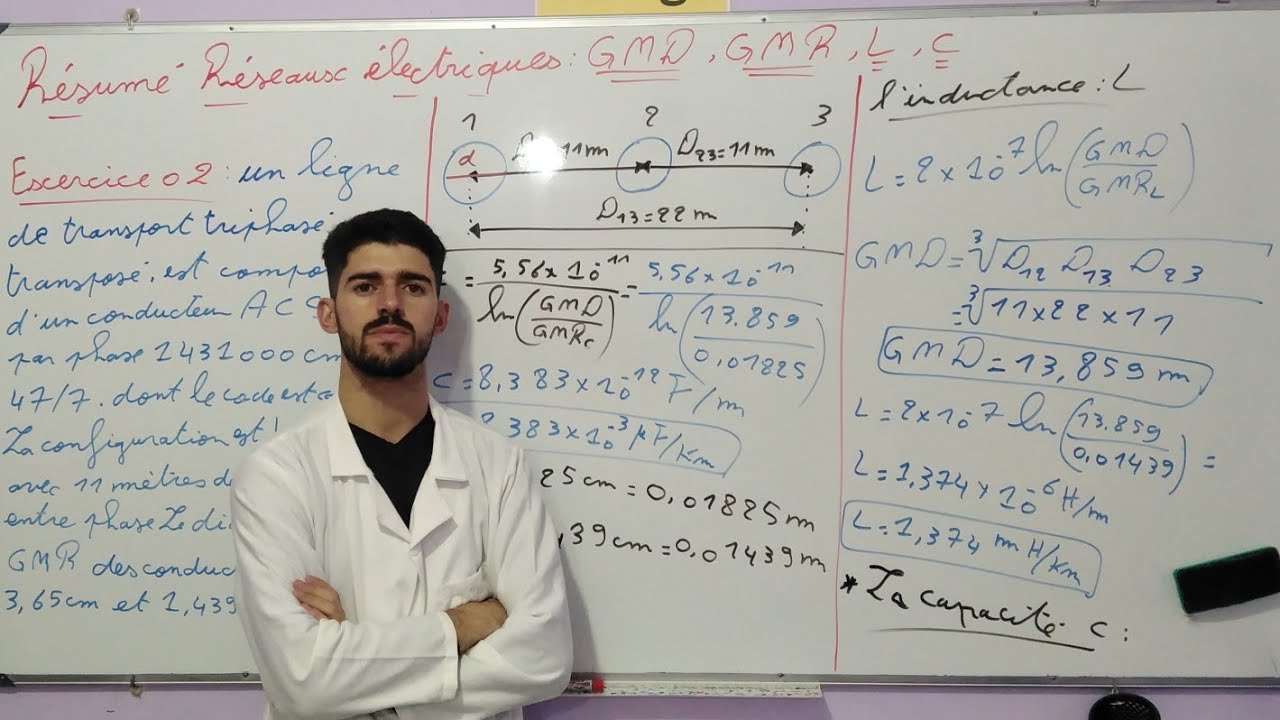 Résumé Réseaux électriques : GMD, GMR, L, C
Excercice 02 : un ligne
de transport triphasé
transposé, est compo
d'un conducteur AC
par phase 1431000 cm
47/7. dont le code est
La configuration est
avec 11 mètres d
entre phase Le di
GMR des conduc
3,65cm et 1,439
1 2 3
d 11m D23=11m
D13=22m
= 5,56×10^-11 / ln(GMD/GMRc) = 5,56×10^-11 / ln(13.859/0,01825)
C = 8,383×10^-12 F/m
383×10^-3 μF/Km
25cm = 0,01825m
39cm = 0,01439m
l'inductance : L
L = 2×10^-7 ln(GMD/GMRL)
GMD = ∛D12 D13 D23
= ∛11×22×11
GMD = 13,859 m
L = 2×10^-7 ln(13,859/0,01439) =
L = 1,374×10^-6 H/m
L = 1,374 mH/Km
* La capacite C :